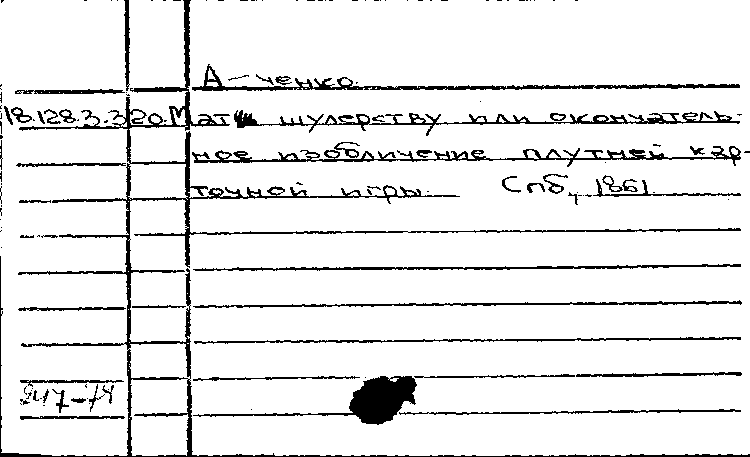 А-ченко.
18.128.3.320. Мат шулерству или окончатель-
ное изобличение плутней кар-
точной игры. Спб, 1861
247-74